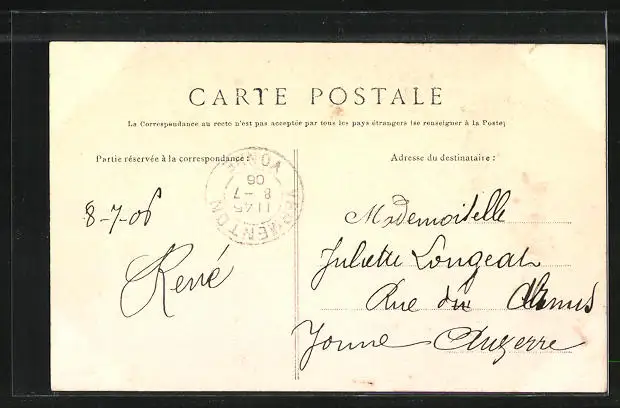 CARTE POSTALE
La Correspondance au recto n'est pas acceptée par tous les pays étrangers (se renseigner à la Poste)
Partie réservée à la correspondance:
Adresse du destinataire:
VERMENTON
YONNE
11 45
8 - 7
06
8-7-06
René
Mademoiselle
Juliette Longeat
Rue du
Yonne Auxerre